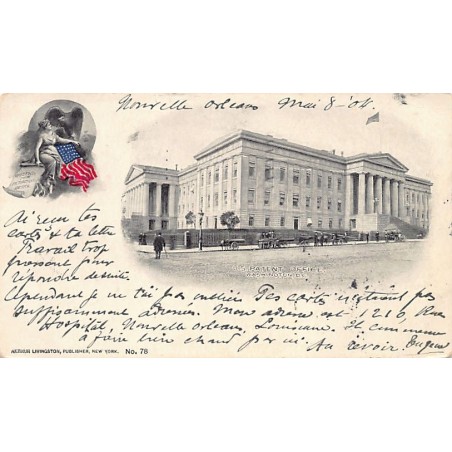 Nouvelle Orleans Mai 8 - '04
Ai reçu tes
cartes
Travail trop
pressant pour
répondre de suite
Cependant je ne t'ai pas oublié Tes cartes n'étaient pas
suffisamment adresses. Mon adresse est 1216, Rue
Hospital, Nouvelle Orleans, Louisiane. Il commence
à faire bien chaud par ici. Au revoir. Eugene
U.S. PATENT OFFICE
WASHINGTON, D.C.
ARTHUR LIVINGSTON, PUBLISHER, NEW YORK. No. 78